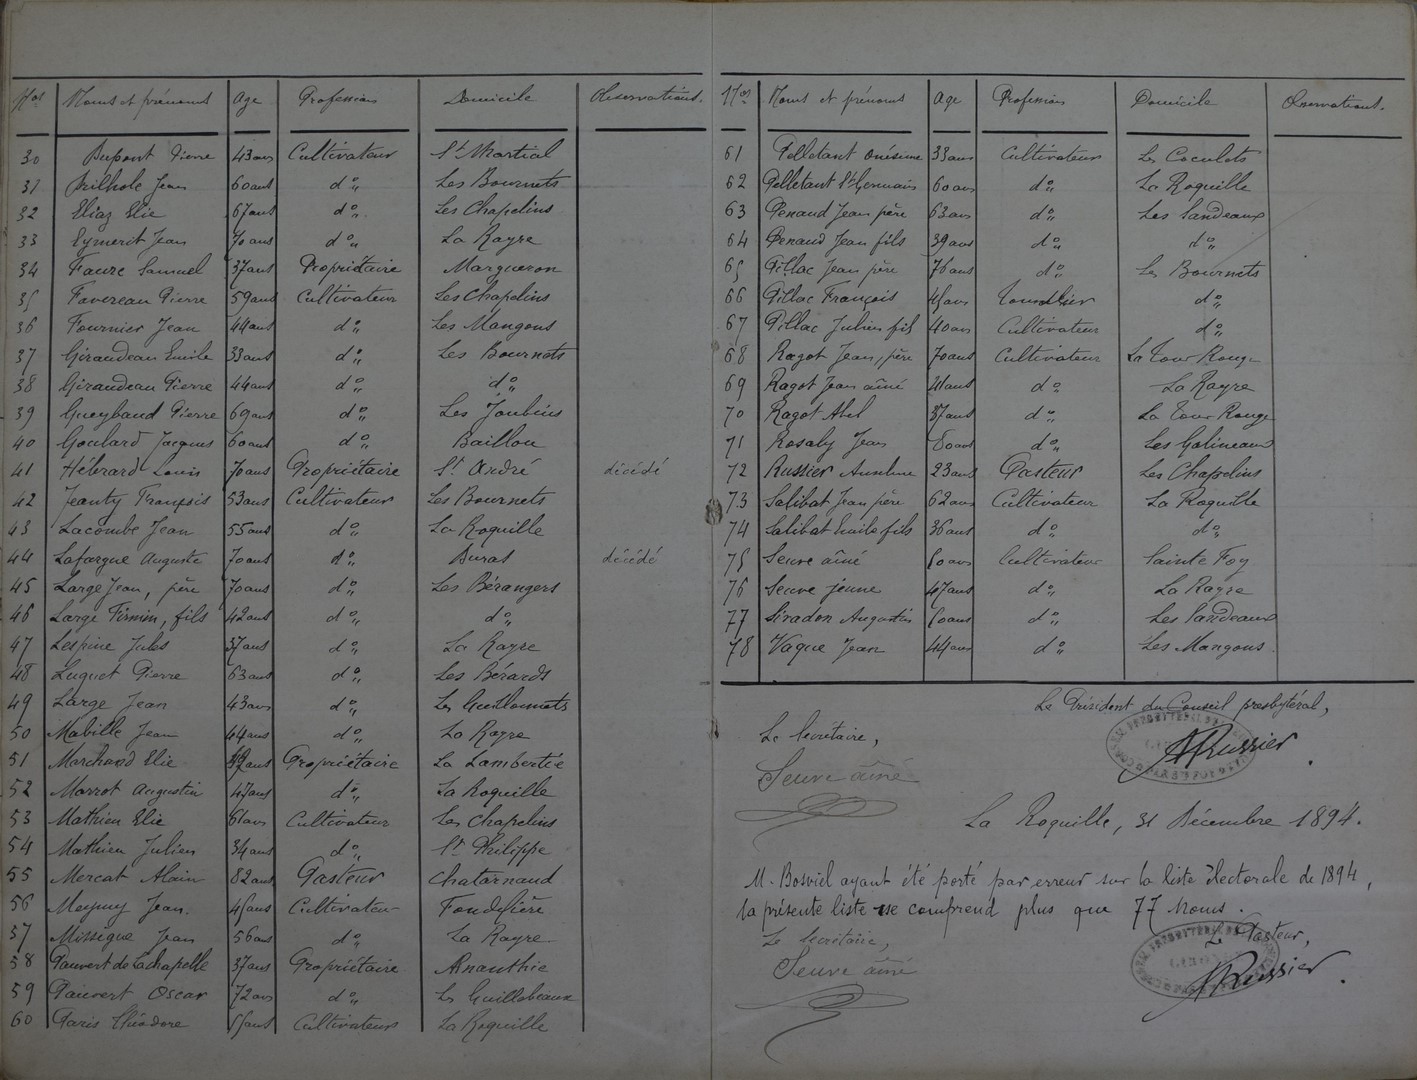 Nos Noms et prénoms Age Profession Domicile Observations.
30 Dupont Pierre 43 ans Cultivateur St Martial
31 Brilhole Jean 60 ans do Les Bournets
32 Eliaz Elie 67 ans do Les Chapelins
33 Eymerit Jean 70 ans do La Rayre
34 Faure Samuel 37 ans Propriétaire Margueron
35 Favereau Pierre 59 ans Cultivateur Les Chapelins
36 Fournier Jean 44 ans do Les Mangons
37 Giraudeau Emile 33 ans do Les Bournets
38 Giraudeau Pierre 44 ans do do
39 Gueybaud Pierre 69 ans do Les Joubins
40 Goulard Jacques 60 ans do Baillou
41 Hébrard Louis 70 ans Propriétaire St André décédé
42 Jeanty François 53 ans Cultivateur Les Bournets
43 Lacombe Jean 55 ans do La Roquille
44 Lafargue Auguste 70 ans do Duras décédé
45 Large Jean, père 70 ans do Les Bérangers
46 Large Firmin, fils 42 ans do do
47 Lespine Jules 37 ans do La Rayre
48 Luguet Pierre 63 ans do Les Bérards
49 Large Jean 43 ans do Les Guillonnets
50 Mabille Jean 44 ans do La Rayre
51 Marchand Elie ans Propriétaire La Lambertie
52 Marrot Augustin 47 ans do La Roquille
53 Mathieu Elie 61 ans Cultivateur Les Chapelins
54 Mathieu Julien 34 ans do St Philippe
55 Mercat Alain 82 ans Pasteur Chatarnaud
56 Meymy Jean. 45 ans Cultivateur
57 Missègue Jean 56 ans do La Rayre
58 Pauvert de Lachapelle 37 ans Propriétaire
59 Pauvert Oscar 72 ans do Les Guillebeaux
60 Paris Théodore 55 ans Cultivateurs La Roquille
Nos Noms et prénoms Age Profession Domicile Observations.
61 Pelletant Onésime 33 ans Cultivateur Les Coculets
62 Pelletant St Germain 60 ans do La Roquille
63 Penaud Jean père 63 ans do Les Landeaux
64 Penaud Jean fils 39 ans do do
65 Pillac Jean père 76 ans do Les Bournets
66 Pillac François 45 ans Tonnelier do
67 Pillac Julien fils 40 ans Cultivateur do
68 Ragot Jean, père 70 ans Cultivateur La Tour Rouge
69 Ragot Jean aîné 41 ans do La Rayre
70 Ragot Abel 37 ans do La Tour Rouge
71 Rosaby Jean 80 ans do Les Galineaux
72 Russier Anselme 23 ans Pasteur Les Chapelins
73 Salibat Jean père 62 ans Cultivateur La Roquille
74 Salibat Emile fils 36 ans do do
75 Seuve aîné 50 ans Cultivateur Sainte Foy
76 Seuve jeune 47 ans do La Rayre
77 Siradon Augustin 60 ans do Les Landeaux
78 Vaque Jean 44 ans do Les Mangons
Le Président du Conseil presbytéral,
Le Secrétaire,
ARussier
Seuve aîné
La Roquille, 31 Décembre 1894.
M. Bosviel ayant été porté par erreur sur la liste électorale de 1894,
la présente liste ne comprend plus que 77 Noms.
Le Secrétaire, Le Pasteur,
Seuve aîné ARussier